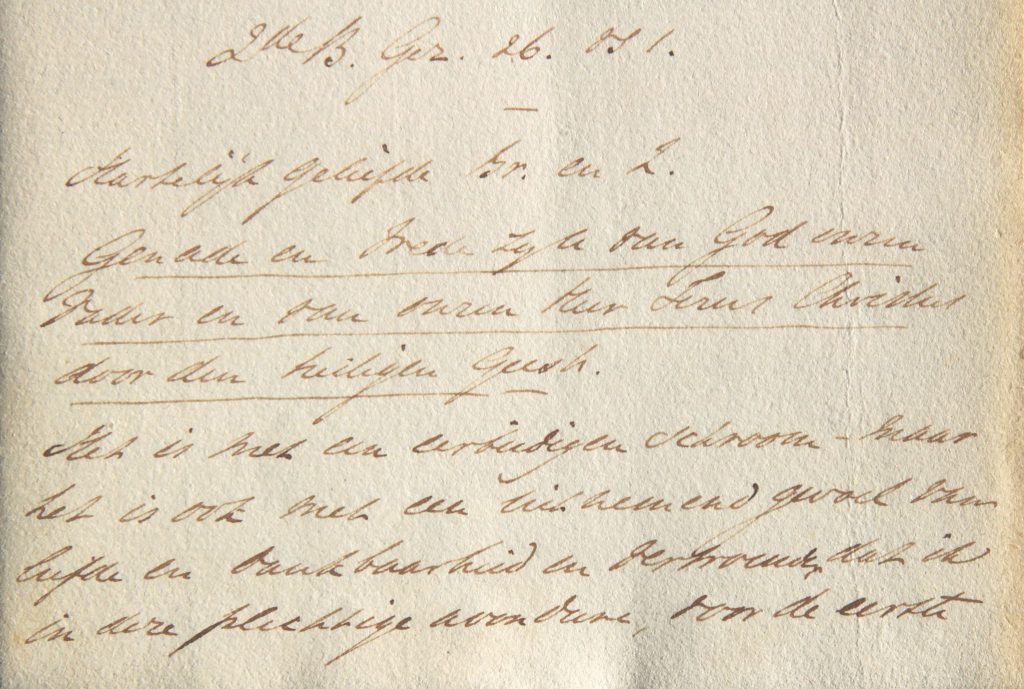 2de B. Gez. 26. vs 1.
Hartelijk geliefde Br. en Z.
Genade en vrede zijde van God onzen
Vader en van onzen Heer Jezus Christus
door den heiligen Geest.
Het is met een eerbiedigen schroom - maar
het is ook met een uitnemend gevoel van
liefde en dankbaarheid en vertrouwen, dat ik
in deze plechtige avondure, voor de eerste